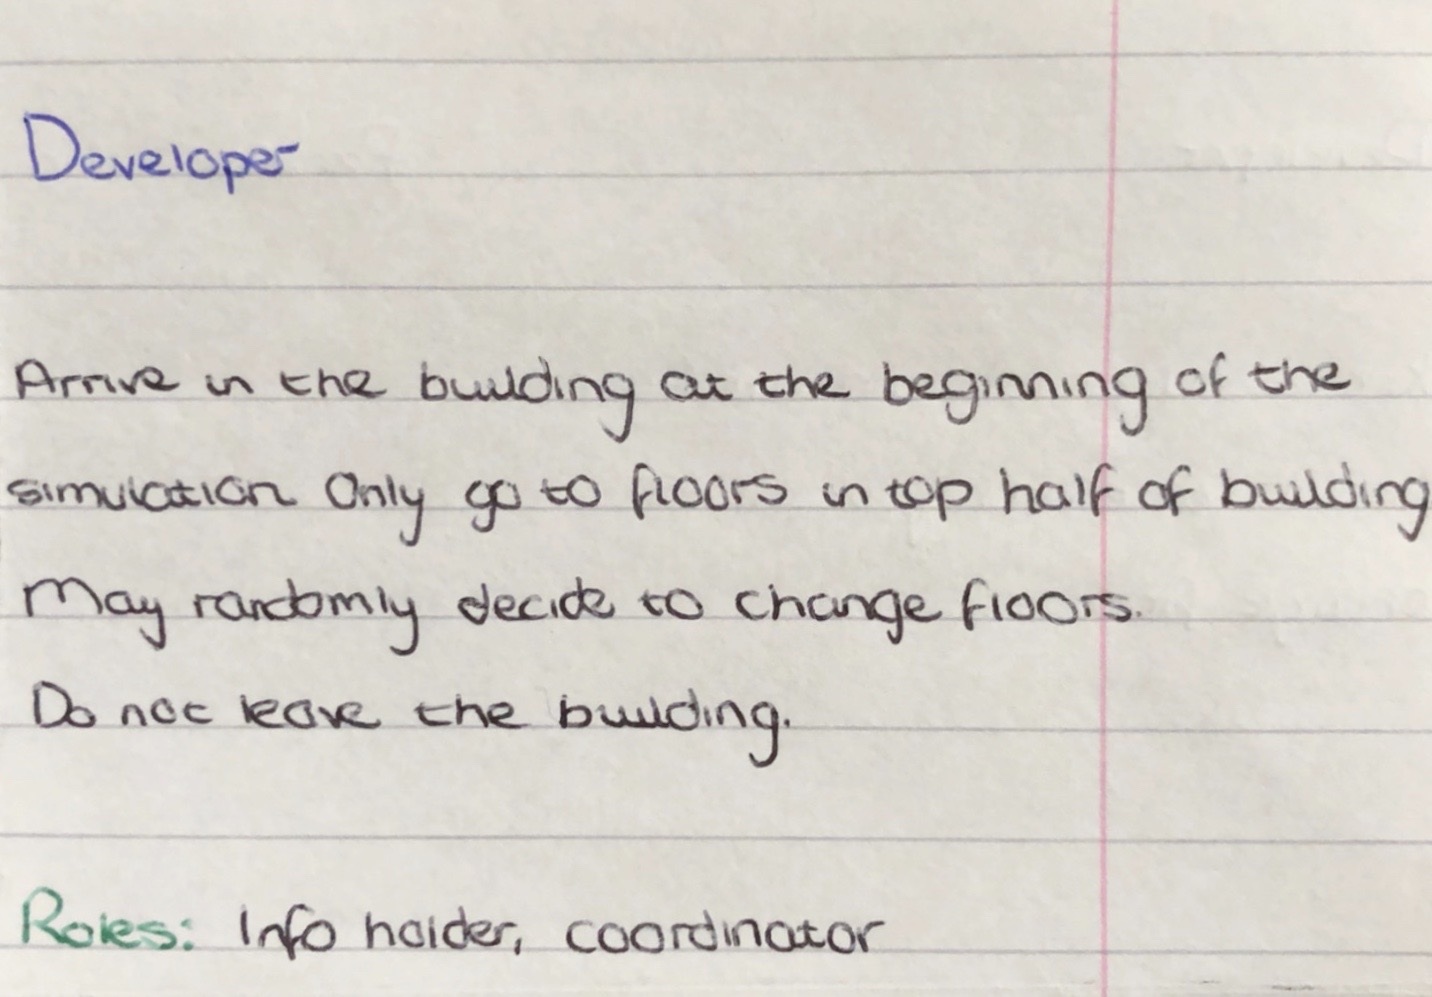 Developer
Arrive in the building at the beginning of the
simulation Only go to floors in top half of building
May randomly decide to change floors.
Do not leave the building.
Roles: Info holder, coordinator